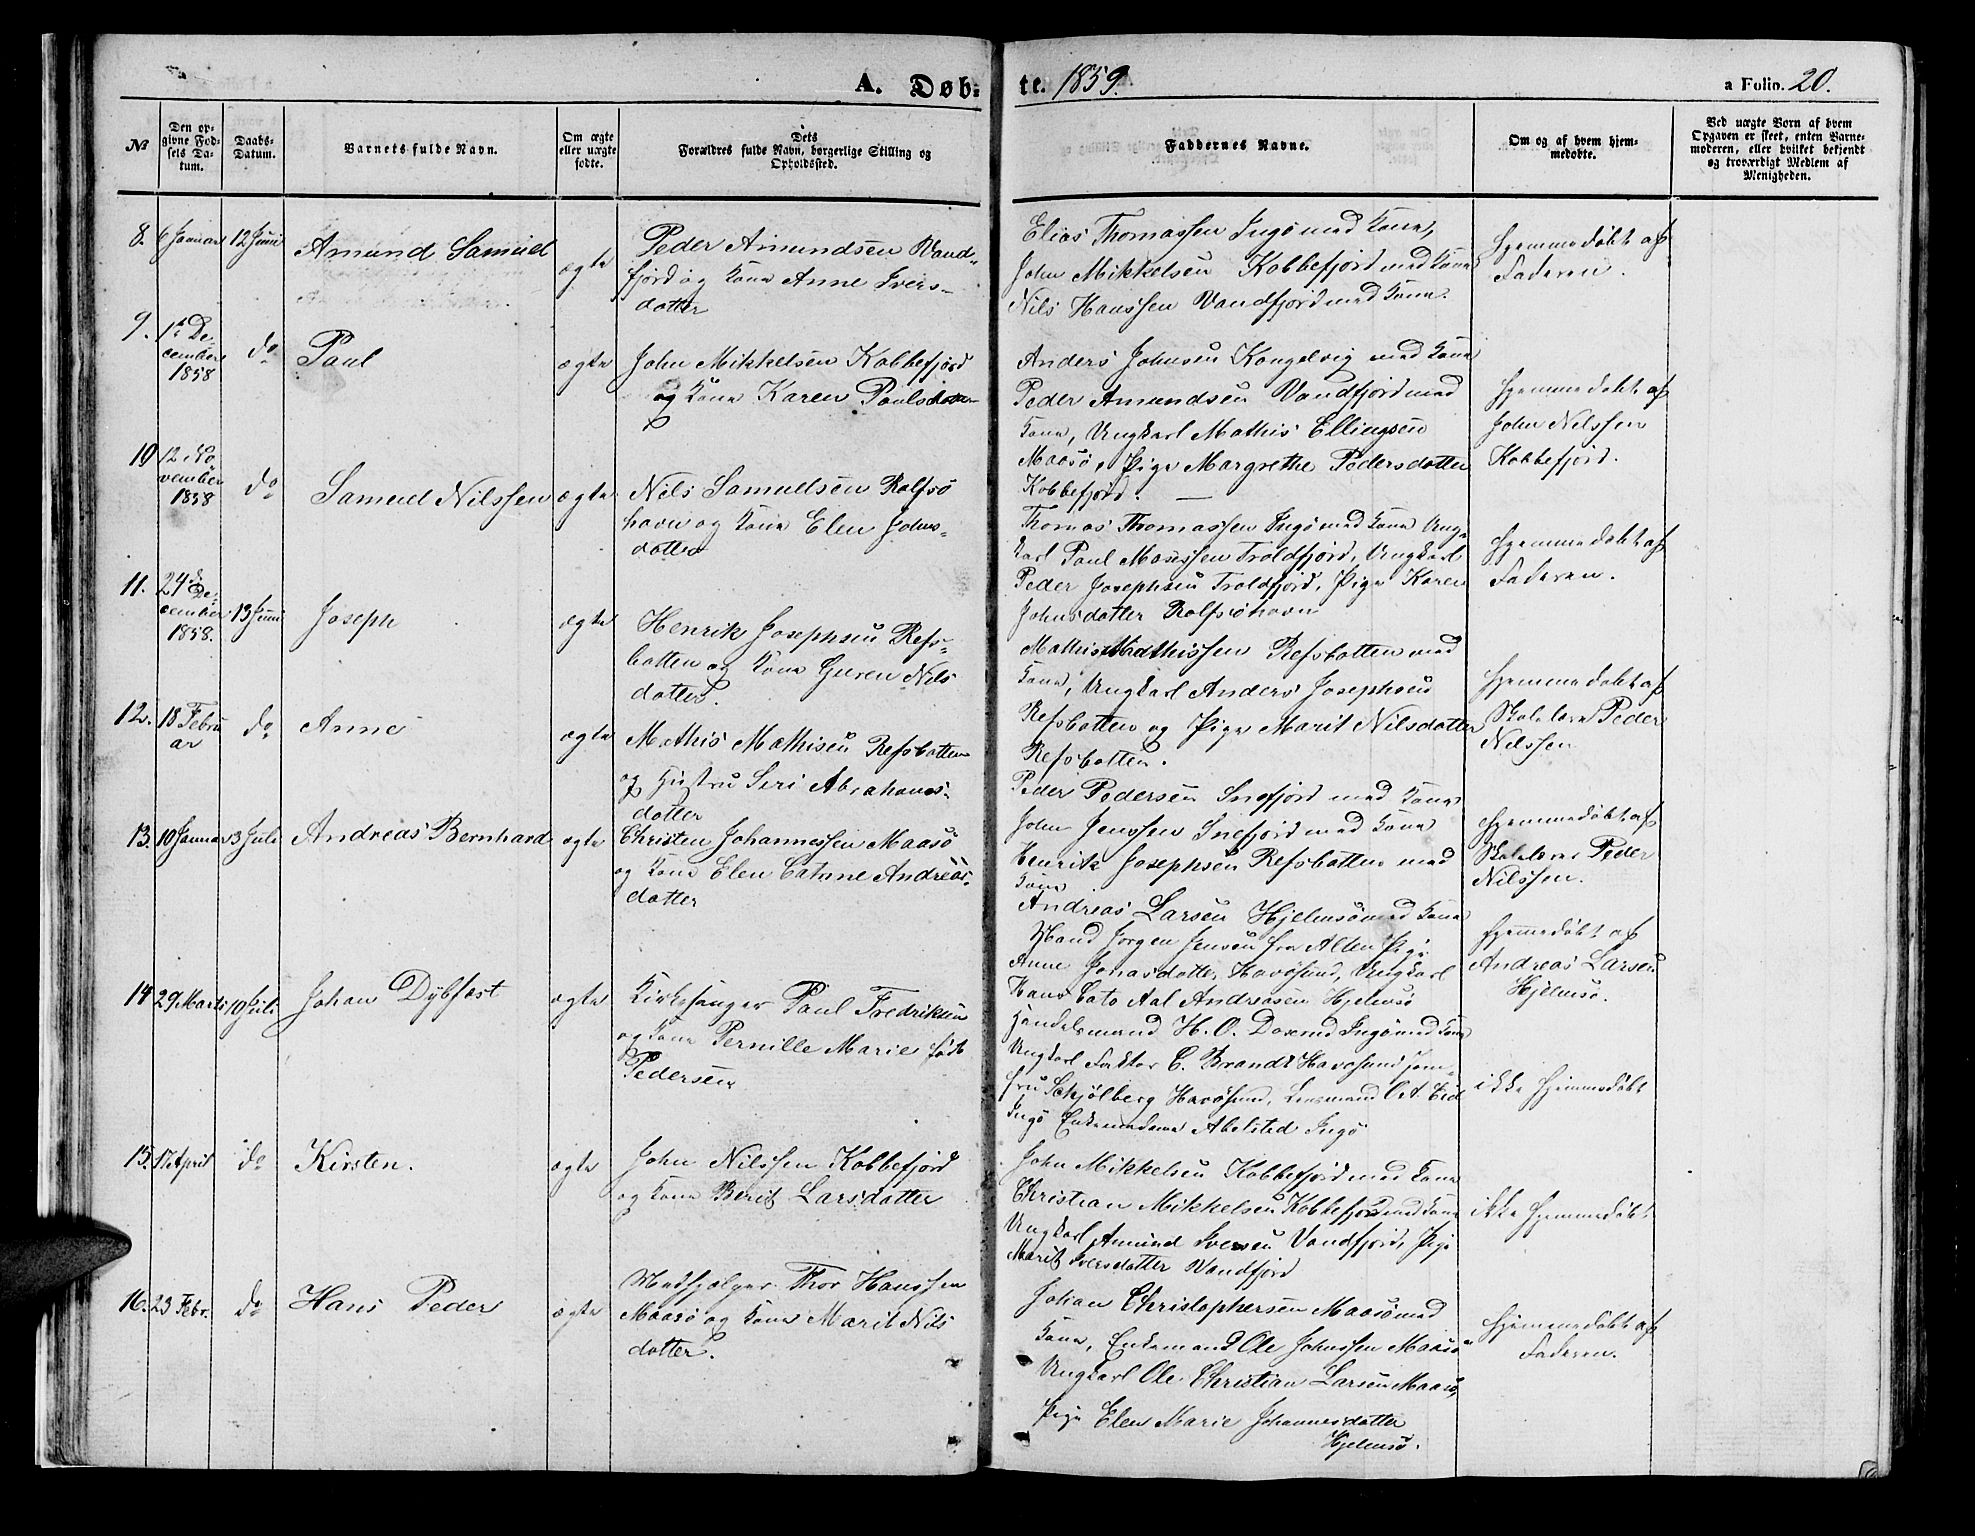 A. Døb-
te. 1859.
a Folio. 20.
No
Den op-
givne Fød-
sels Da-
tum.
Daabs-
Datum.
Barnets fulde Navn.
Om ægte
eller uægte
fødte.
Dets
Forældres fulde Navn, borgerlige Stilling og
Opholdssted.
Faddernes Navne.
Om og af hvem hjem-
medøbte.
Ved uægte Børn af hvem
Opgaven er skeet, enten Barne-
moderen, eller hvilket bekjendt
og troværdigt Medlem af
Menigheden.
8. 6 Januar 12 Juni Amund Samuel ægte
Peder Amundsen Vand-
fjord og Kone Anne Ivers-
datter
Elias Thomassen Ingø med Kone,
John Mikkelsen Kobbefjord med Kone
Nils Hanssen Vandfjord med Kone.
Hjemmedøbt af
Faderen.
9. 1ste De-
cember
1858
do Paul ægte
John Mikkelsen Kobbefjord
og Kone Karen Paulsdatter
Anders Johnsen Kongelvig med Kone
Peder Amundsen Vandfjord med
Kone, Ungkarl Mathis Ellingsen
Maasø, Pige Margrethe Pedersdatter
Kobbefjord.
Hjemmedøbt af
John Nilssen
Kobbefjord.
10 12 No
vember
1858
do Samuel Nilssen ægte
Nils Samuelsen Rolfsø
havn og Kone Elen Johns-
datter
Thomas Thomassen Ingø med Kone Ung-
karl Paul Mosessen Troldfjord, Ungkarl
Peder Josephsen Troldfjord, Pige Karen
Johnsdatter Rolfsøhavn
Hjemmedøbt af
Faderen.
11. 24de De-
cember
1858.
13 Juni Joseph ægte
Henrik Josephsen Refs-
botten og Kone Guren Nils
datter.
Mathis Mathissen Refsbotten med
Kone, Ungkarl Anders Josephsen
Refsbotten og Pige Marit Nilsdatter
Refsbotten.
Hjemmedøbt af
Skolelærer Peder
Nilssen
12. 18 Febru
ar
do Anne ægte
Mathis Mathisen Refsbotten
og Hustru Siri Abrahams-
datter
Peder Pedersen Snefjord med Kone
John Jenssen Snefjord med Kone
Henrik Josephsen Refsbotten med
Kone
Hjemmedøbt af
Skolelærer Peder
Nilssen.
13. 10 Januar 3 Juli Andreas Bernhard ægte
Christen Johannessen Maasø
og Kone Elen Catrine Andreas-
datter
Andreas Larsen Hjelmsø med Kone
Mand Jørgen Jensen fra Alten Pige
Anne Jonasdatter Havøsund, Ungkarl
Hans Cato Aal Andreasen Hjelmsø
Hjemmedøbt af
Andreas Larsen
Hjelmsø.
14 29 Marts 10 Juli Johan Dybfest ægte
Kirkesanger Paul Fredriksen
og Kone Pernille Marie født
Pedersen
Handelsmand H. O. Ingø med Kone
Ungkarl Faktor C. Brandt Havøsund Jom-
fru Schjølberg Havøsund, Lensmand
Ingø Enkemadame Abelsted Ingø
ikke Hjemmedøbt
15. 17 April do Kirsten. ægte
John Nilssen Kobbefjord
og Kone Berit Larsdatter
John Mikkelsen Kobbefjord med Kone
Christian Mikkelsen Kobbefjord med Kone
Ungkarl Amund Iversen Vandfjord, Pige
Marit Iversdatter Vandfjord
ikke Hjemmedøbt
16. 23 Febr. do Hans Peder ægte
Medhjælper Thor Hanssen
Maasø og Kone Marit Nils
datter.
Johan Christophersen Maasø med
Kone, Enkemand Ole Johnssen Maasø
Ungkarl Ole Christian Larsen Maasø,
Pige Elen Marie Johannesdatter
Hjelmsø.
Hjemmedøbt af
Faderen.